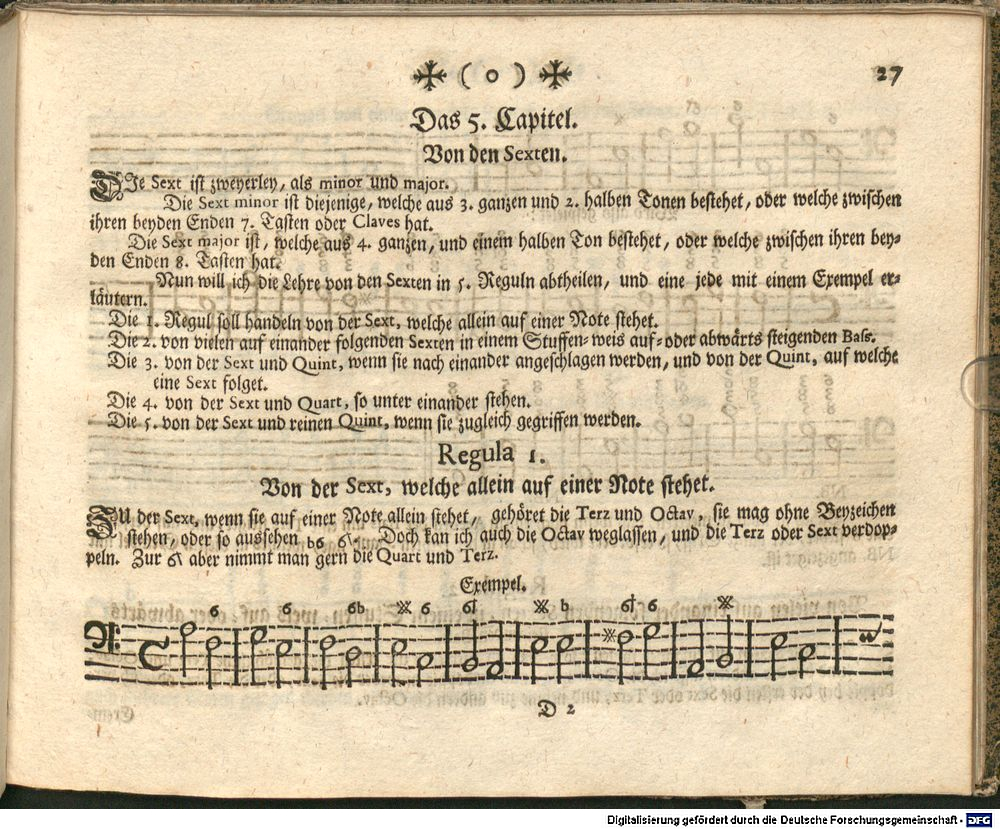 ( o )
27
Das 5. Capitel.
Von den Sexten.
DIe Sext ist zweyerley, als minor und major.
Die Sext minor ist diejenige, welche aus 3. ganzen und 2. halben Tonen bestehet, oder welche zwischen
ihren beyden Enden 7. Tasten oder Claves hat.
Die Sext major ist, welche aus 4. ganzen, und einem halben Ton bestehet, oder welche zwischen ihren bey-
den Enden 8. Tasten hat.
Nun will ich die Lehre von den Sexten in 5. Reguln abtheilen, und eine jede mit einem Exempel er-
läutern.
Die 1. Regul soll handeln von der Sext, welche allein auf einer Note stehet.
Die 2. von vielen auf einander folgenden Sexten in einem Stuffen-weis auf- oder abwärts steigenden Bass.
Die 3. von der Sext und Quint, wenn sie nach einander angeschlagen werden, und von der Quint, auf welche
eine Sext folget.
Die 4. von der Sext und Quart, so unter einander stehen.
Die 5. von der Sext und reinen Quint, wenn sie zugleich gegriffen werden.
Regula 1.
Von der Sext, welche allein auf einer Note stehet.
ZU der Sext, wenn sie auf einer Note allein stehet, gehöret die Terz und Octav, sie mag ohne Beyzeichen
stehen, oder so aussehen b6 6†. Doch kan ich auch die Octav weglassen, und die Terz oder Sext verdop-
peln. Zur 6† aber nimmt man gern die Quart und Terz.
Exempel.
6 6 6b ※ 6 6† ※ b 6† 6 ※
D 2
Digitalisierung gefördert durch die Deutsche Forschungsgemeinschaft - DFG